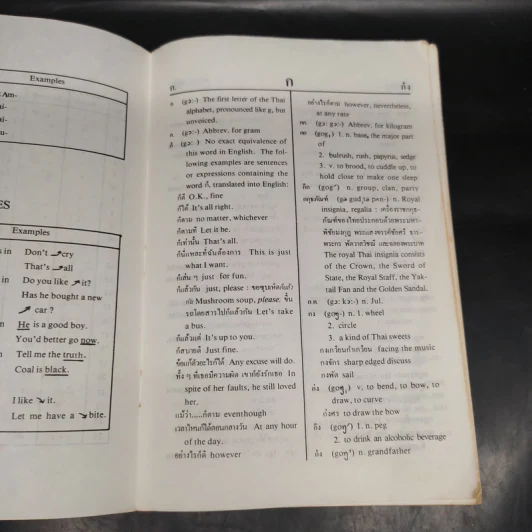 Examples
Am-
Examples
Don't ↗cry
That's ↗all
Do you like ↗it?
Has he bought a new
↗ car ?
He is a good boy.
You'd better go now.
Tell me the truth.
Coal is black.
I like ↘ it.
Let me have a ↘bite.
ก
ก
กั๋ง
ก (gɔ:-) The first letter of the Thai
alphabet, pronounced like g, but
unvoiced.
ก. (gɔ:-) Abbrev. for gram
ก็ (gɔ:-) No exact equivalence of
this word in English. The fol-
lowing examples are sentences
or expressions containing the
word ก็, translated into English:
ก็ดี O.K., fine
ก็ได้ It's all right.
ก็ตาม no matter, whichever
ก็ตามที Let it be.
ก็เท่านั้น That's all.
ก็นี่แหละที่ฉันต้องการ This is just
what I want.
ก็เล่น ๆ just for fun.
ก็แล้วกัน just, please : ขอซุบเห็ดก็แล้ว
กัน Mushroom soup, please. ขึ้น
รถโดยสารไปก็แล้วกัน Let's take
a bus.
ก็แล้วแต่ It's up to you.
ก็สบายดี Just fine.
ข้อแก้ตัวอะไรก็ได้ Any excuse will do.
ทั้ง ๆ ที่เธอมีความผิด เขาก็ยังรักเธอ In
spite of her faults, he still loved
her.
แม้ว่า.....ก็ตาม eventhough
เวลาไหนก็ได้ตอนกลางวัน At any hour
of the day.
อย่างไรก็ดี however
อย่างไรก็ตาม however, nevertheless,
at any rate
กก. (gɔ: gɔ:-) Abbrev. for kilogram
กก 1. n. base, the major part
of
2. bulrush, rush, papyrus, sedge
3. v. to brood, to cuddle up, to
hold close to make one sleep
ก๊ก n. group, clan, party
กกุธภัณฑ์ n. Royal
insignia, regalia : เครื่องราชกกุธ-
ภัณฑ์ของไทยประกอบด้วยพระมหา-
พิชัยมงกุฎ พระแสงขรรค์ชัยศรี ธาร-
พระกร พัดวาลวิชนี และฉลองพระบาท
The royal Thai insignia consists
of the Crown, the Sword of
State, the Royal Staff, the Yak-
tail Fan and the Golden Sandal.
ก.ค. (gɔ: kɔ:-) n. Jul.
กง n. 1. wheel
2. circle
3. a kind of Thai sweets
กงเกวียนกำเกวียน facing the music
กงจักร sharp edged discuss
กงพัด sail
ก่ง v. to bend, to bow, to
draw, to curve
ก่งศร to draw the bow
ก๊ง 1. n. peg
2. to drink an alcoholic beverage
ก๋ง n. grandfather